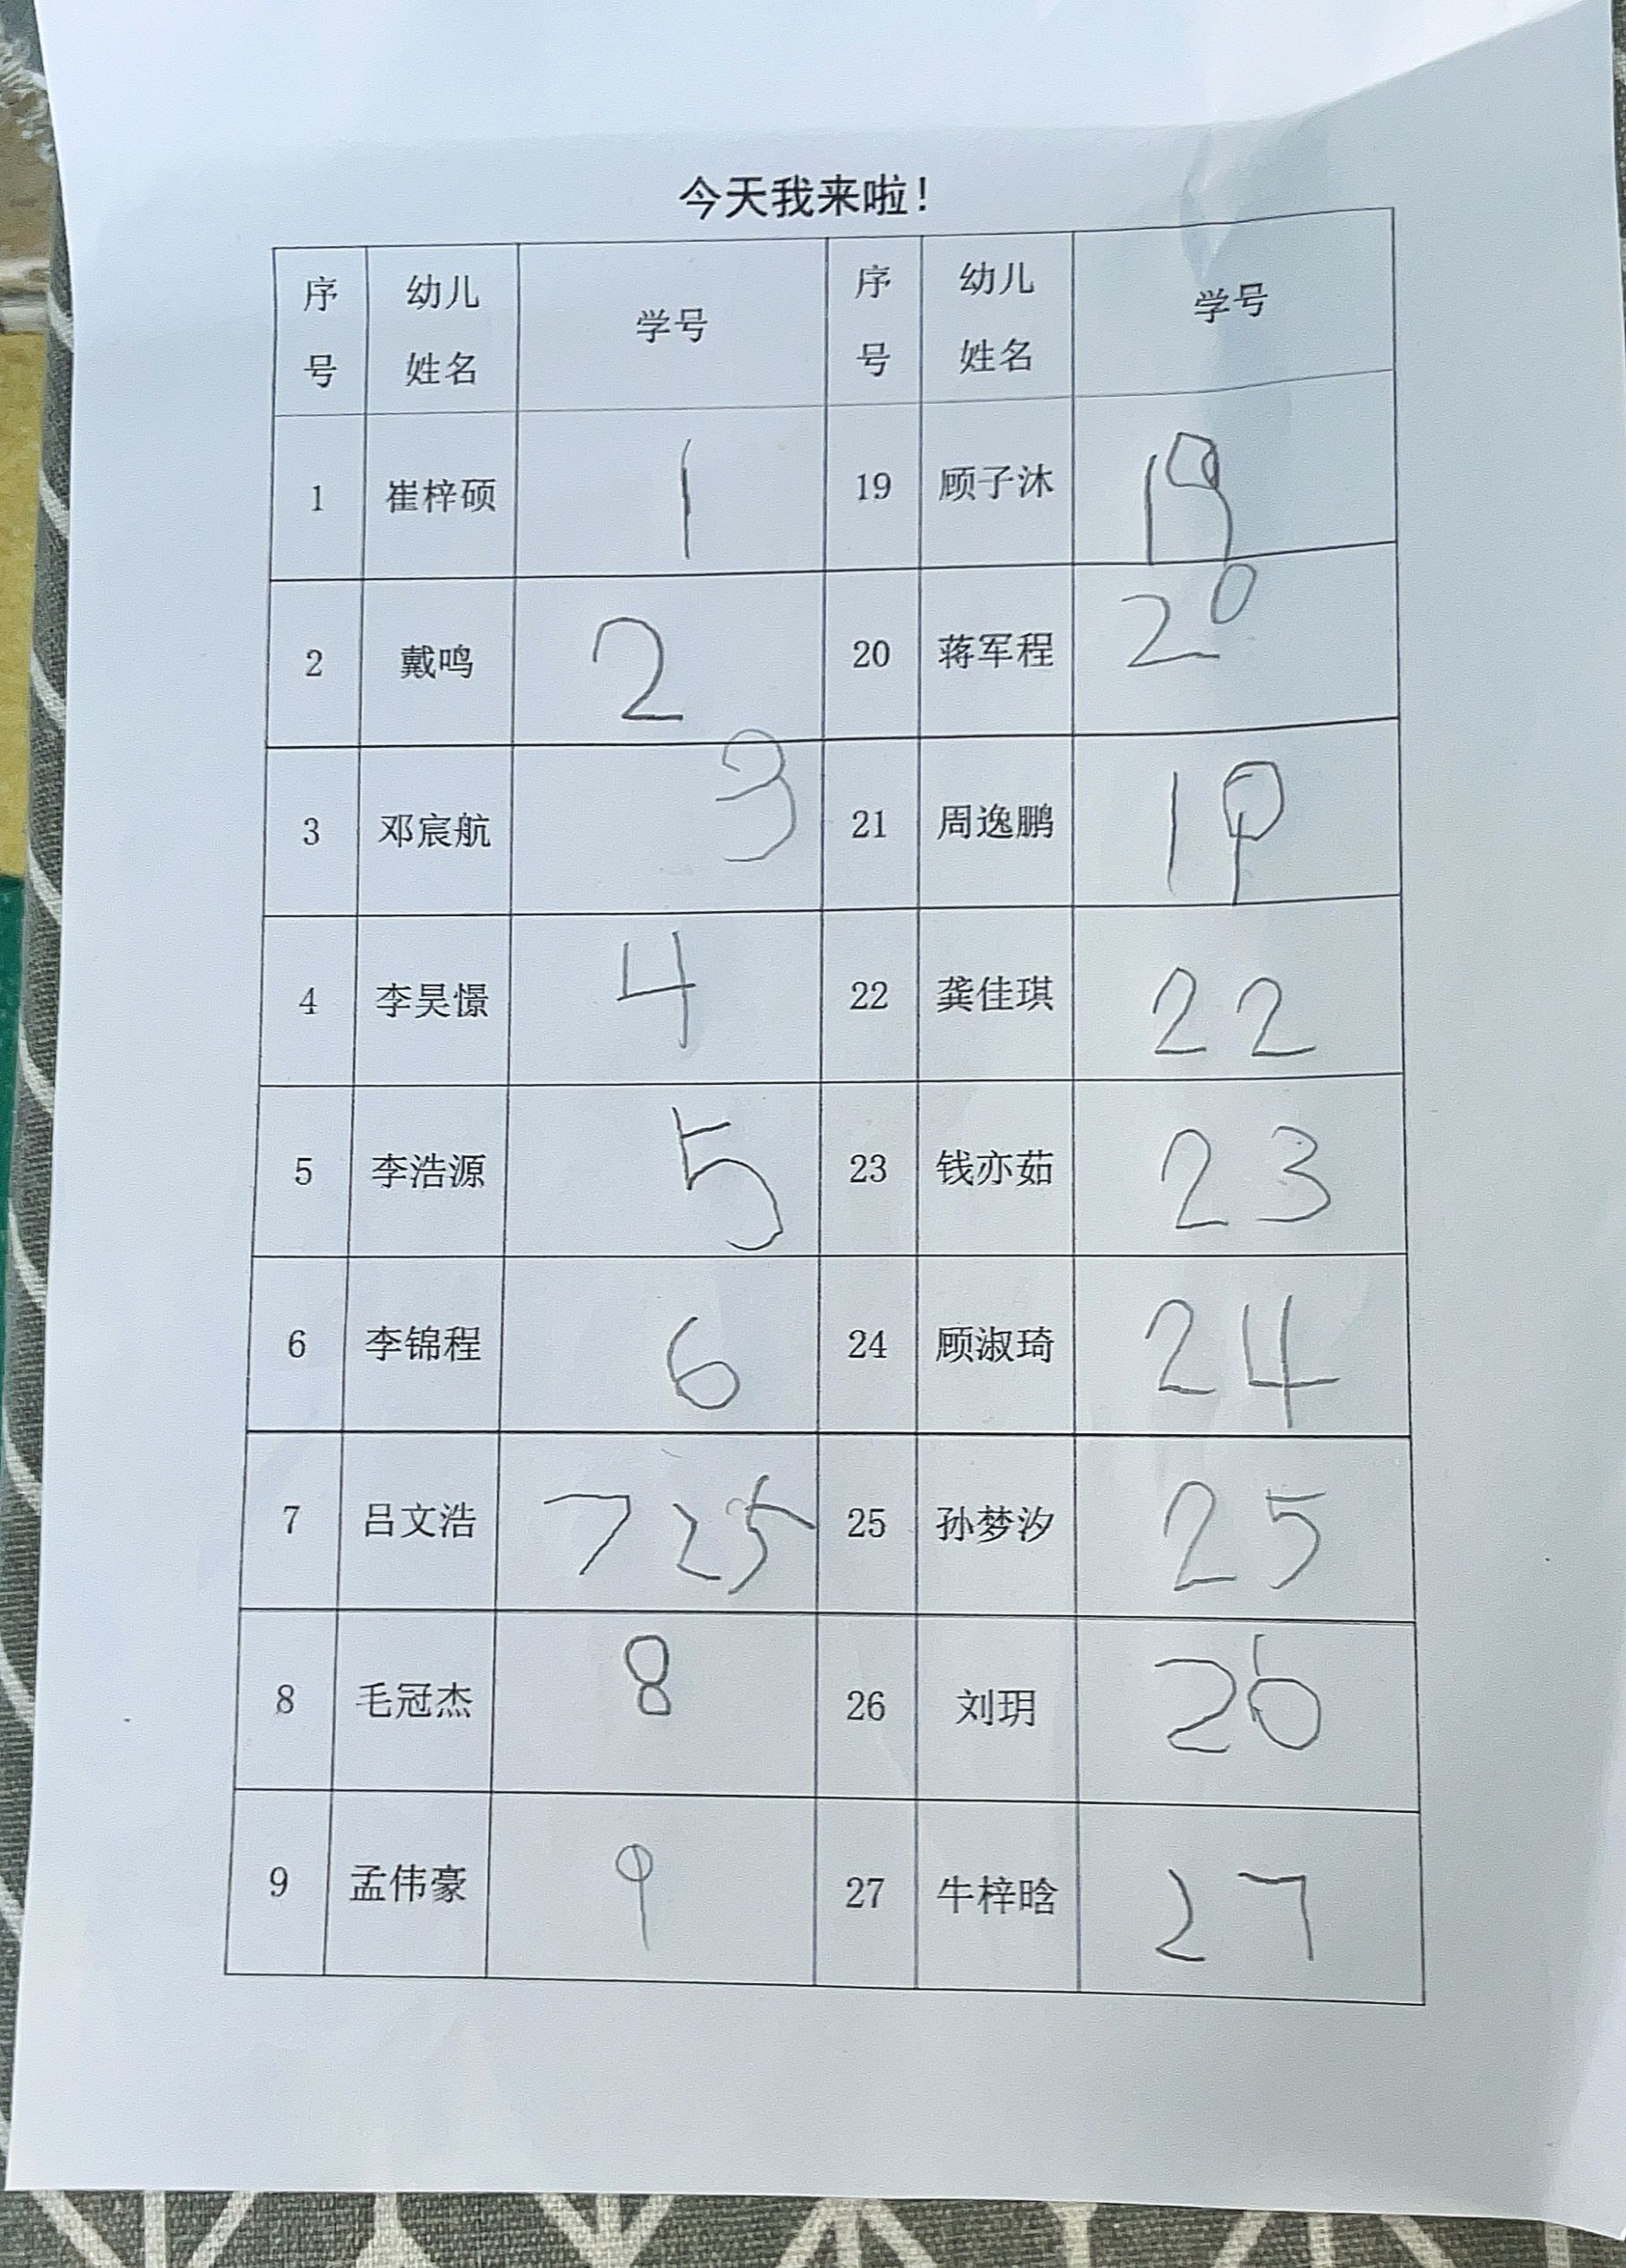 今天我来啦！
序号 幼儿姓名 学号 序号 幼儿姓名 学号
1 崔梓硕 1 19 顾子沐 19
2 戴鸣 2 20 蒋军程 20
3 邓宸航 3 21 周逸鹏 19
4 李昊憬 4 22 龚佳琪 22
5 李浩源 5 23 钱亦茹 23
6 李锦程 6 24 顾淑琦 24
7 吕文浩 7 25 25 孙梦汐 25
8 毛冠杰 8 26 刘玥 26
9 孟伟豪 9 27 牛梓晗 27